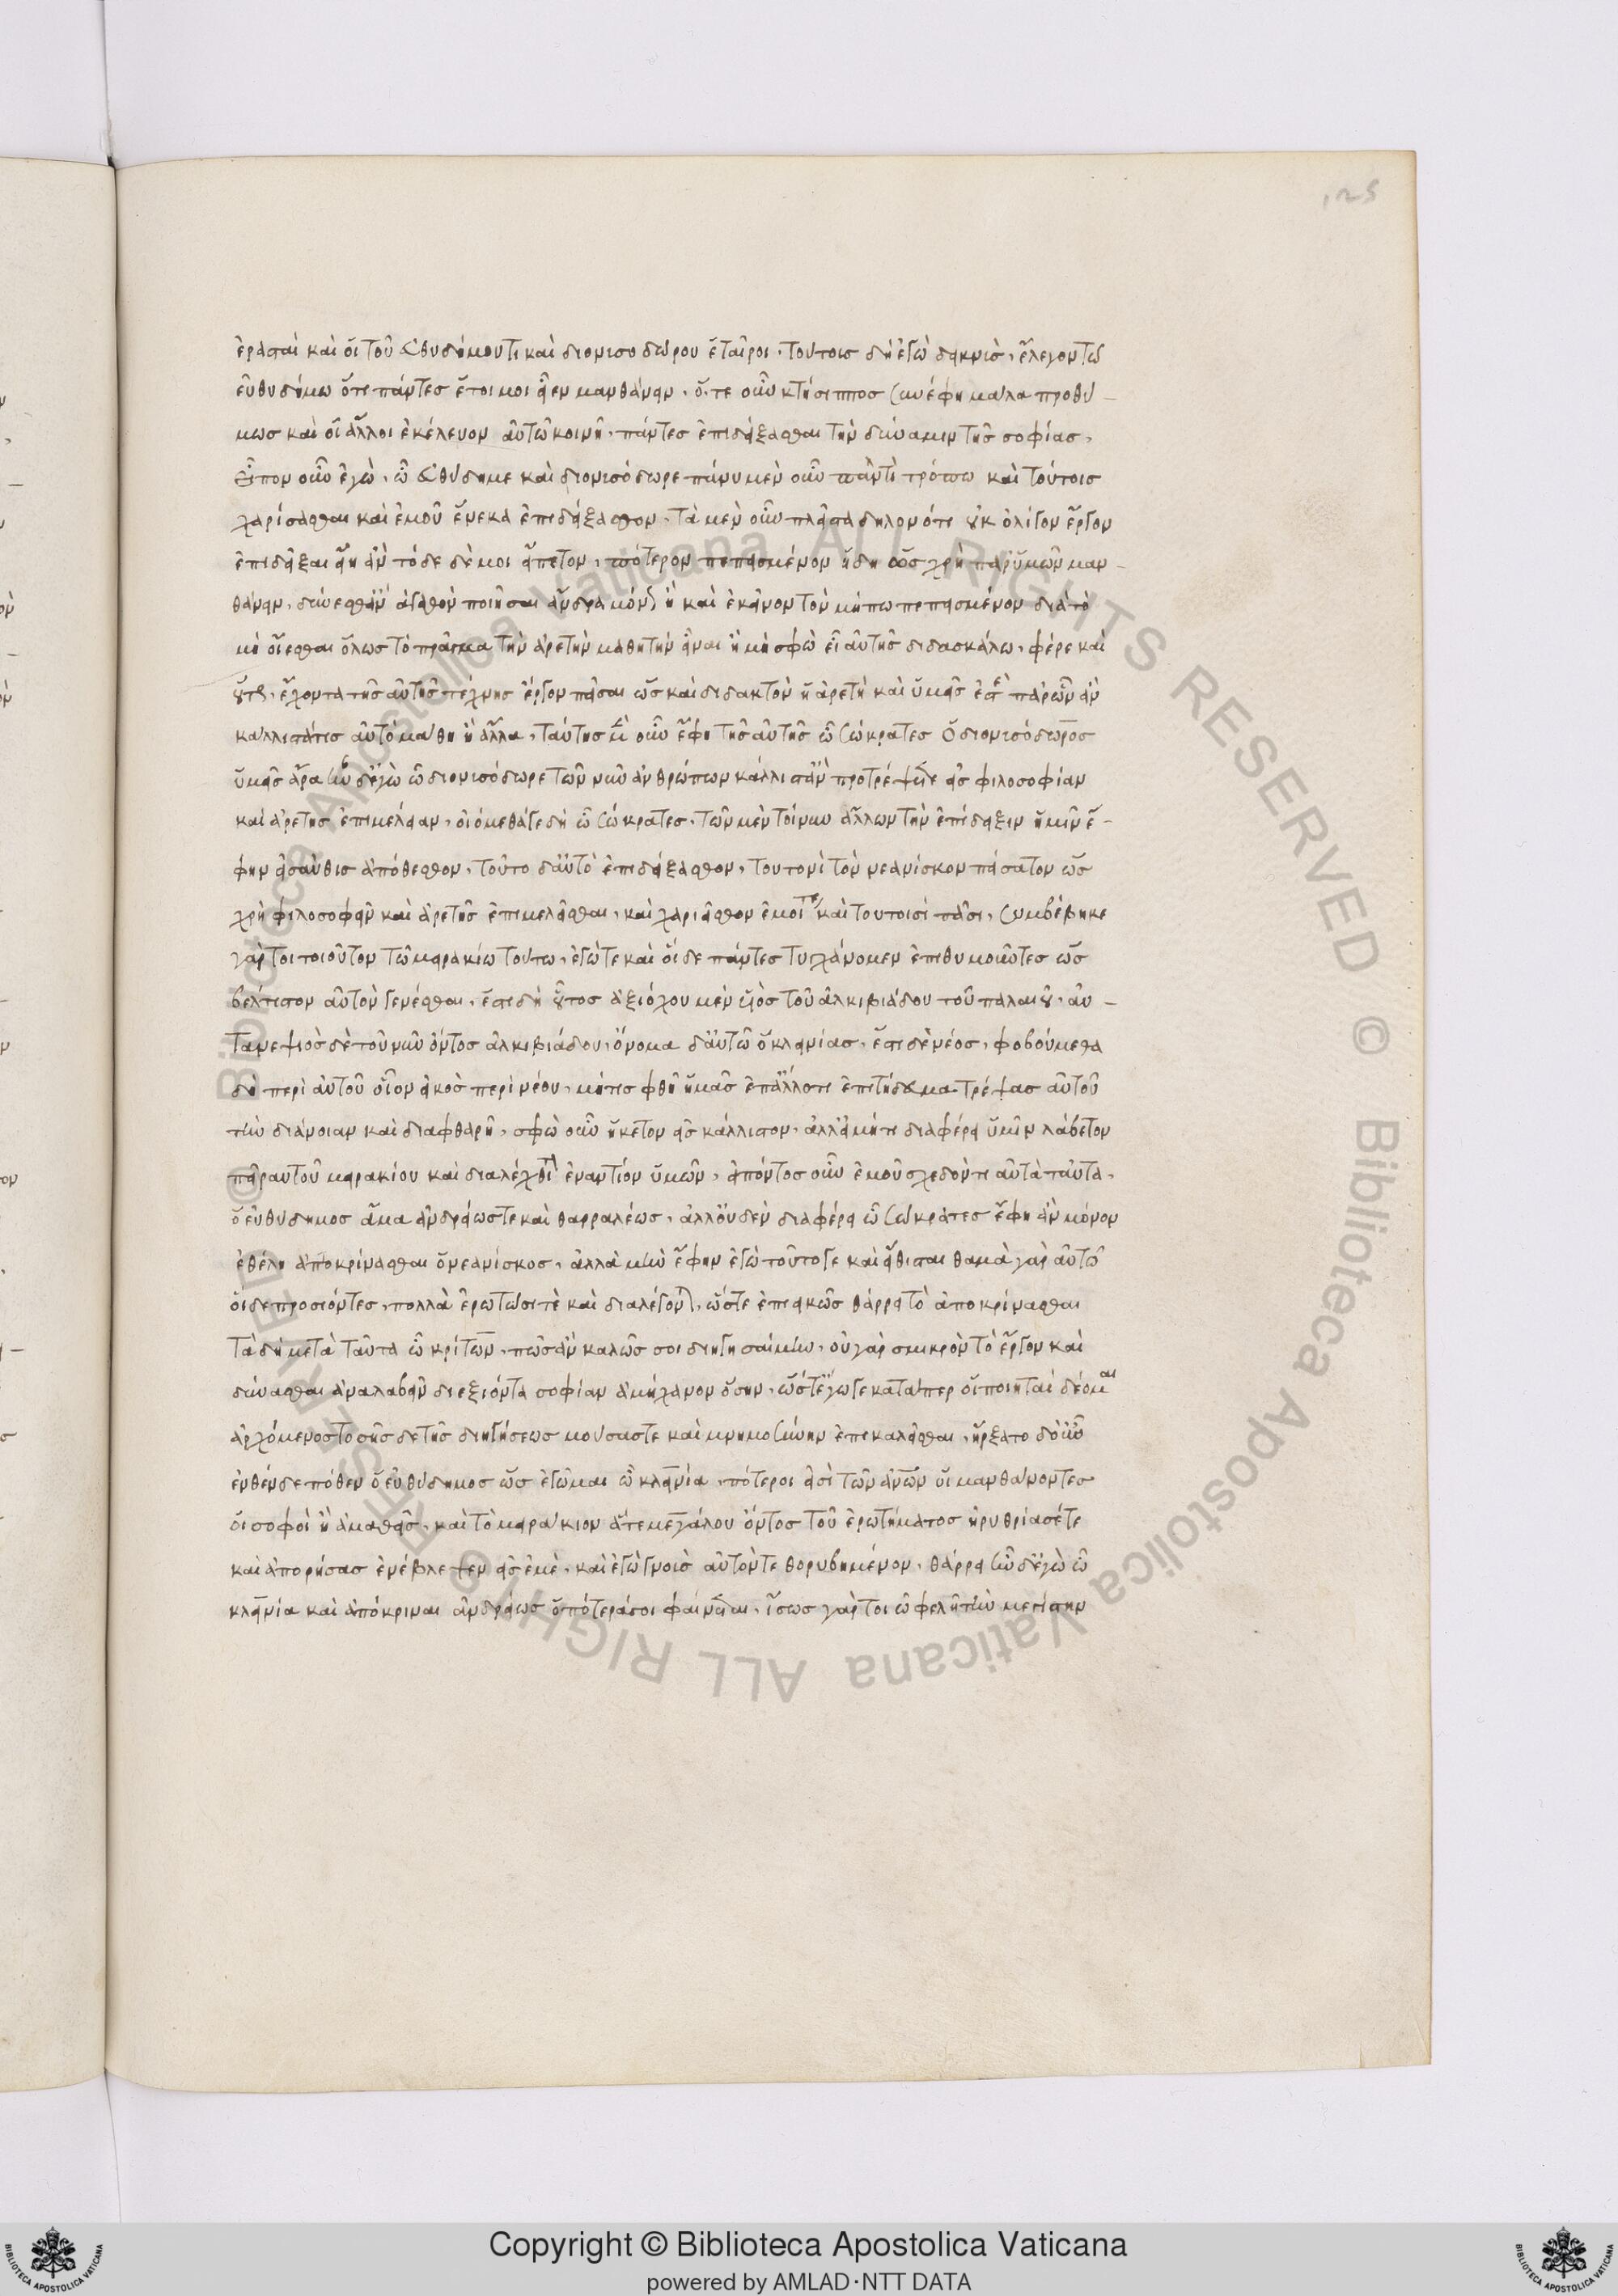 125
ἐρασταὶ καὶ οἱ τοῦ εὐθυδήμου τε καὶ διονυσοδώρου ἑταῖροι. τούτοις δὴ ἐγὼ δεικνὺς, ἔλεγον τῶ
εὐθυδήμω ὅτι πάντες ἕτοιμοι εἶεν μανθάνειν. ὅ, τε οὖν κτήσιππος συνέφη μάλα προθύ-
μως καὶ οἱ ἄλλοι ἐκέλευον αὐτὼ κοινῆ, πάντες ἐπιδείξασθαι τὴν δύναμιν τῆς σοφίας,
εἶπον οὖν ἐγὼ, ὦ εὐθύδημε καὶ διονυσόδωρε πάνυ μὲν οὖν παντὶ τρόπω καὶ τούτοις
χαρίσασθαι καὶ ἐμοῦ ἕνεκα ἐπιδείξασθον, τὰ μὲν οὖν πλεῖστα δηλονότι οὐκ ὀλίγον ἔργον
ἐπιδεῖξαι εἴη ἂν τόδε δέ μοι εἴπετον, πότερον πεπεισμένον ἤδη ὡς χρὴ παρ' ὑμῶν μαν-
θάνειν, δύναισθ' ἂν ἀγαθὸν ποιῆσαι ἄνδρα μόνον ἢ καὶ ἐκεῖνον τὸν μήπω πεπεισμένον διὰ τὸ
μὴ οἴεσθαι ὅλως τὸ πρᾶγμα τὴν ἀρετὴν μαθητὴν εἶναι ἢ μὴ σφὼ εἶ αὐτῆς διδασκάλω, φέρε καὶ
οὕτως, ἔχοντα τῆς αὐτῆς τέχνης ἔργον πεῖσαι ὡς καὶ διδακτὸν ἡ ἀρετὴ καὶ ὑμεῖς ἐστὲ παρ' ὧν ἂν
κάλλιστά τις αὐτὸ μάθη ἢ ἄλλα, ταύτης μὲν οὖν ἔφη τῆς αὐτῆς ὦ σώκρατες ὁ διονυσόδωρος
ὑμεῖς ἄρα ἦν δ' ἐγὼ ὦ διονυσόδωρε τῶν νῦν ἀνθρώπων κάλλιστ' ἂν προτρέψετε εἰς φιλοσοφίαν
καὶ ἀρετῆς ἐπιμέλειαν, οἰόμεθά γε δὴ ὦ σώκρατες, τῶν μὲν τοίνυν ἄλλων τὴν ἐπίδειξιν ἡμῖν ἔ-
φην εἰσαῦθις ἀπόθεσθον, τοῦτο δ' αὐτὸ ἐπιδείξασθον, τουτονὶ τὸν νεανίσκον πείσατον ὡς
χρὴ φιλοσοφεῖν καὶ ἀρετῆς ἐπιμελεῖσθαι, καὶ χαριεῖσθον ἐμοί τε καὶ τουτοισὶ πᾶσι, συμβέβηκε
γάρ τοι τοιοῦτον τῶ μειρακίω τούτω, ἐγώ τε καὶ οἵδε πάντες τυγχάνομεν ἐπιθυμοῦντες ὡς
βέλτιστον αὐτὸν γενέσθαι, ἔστι δὴ οὗτος ἀξιόχου μὲν υἱὸς τοῦ ἀλκιβιάδου τοῦ παλαιοῦ, αὐ-
τανεψιὸς δὲ τοῦ νῦν ὄντος ἀλκιβιάδου, ὄνομα δ' αὐτῶ ὁ κλεινίας, ἔστι δὲ νέος, φοβούμεθα
δὴ περὶ αὐτοῦ οἷον εἰκὸς περὶ νέου, μή τις φθῆ ἡμᾶς ἐπ' ἄλλό τι ἐπιτήδευμα τρέψας αὐτοῦ
τὴν διάνοιαν καὶ διαφθαρῆ, σφὼ οὖν ἥκετον εἰς κάλλιστον, ἀλλ' εἰ μή τι διαφέρει ὑμῖν λάβετον
πεῖραν τοῦ μειρακίου καὶ διαλέχθητι ἐναντίον ὑμῶν, εἰπόντος οὖν ἐμοῦ σχεδόν τι αὐτὰ ταῦτα,
ὁ εὐθύδημος ἅμα ἀνδρείως τε καὶ θαρραλέως, ἀλλ' οὐδὲν διαφέρει ὦ σώκρατες ἔφη ἂν μόνον
ἐθέλη ἀποκρίνασθαι ὁ νεανίσκος, ἀλλὰ μὴν ἔφην ἐγὼ τοῦτό γε καὶ εἴθισται θαμὰ γὰρ αὐτῶ
οἵδε προσιόντες, πολλὰ ἐρωτῶσί τε καὶ διαλέγονται, ὥστε ἐπιεικῶς θάρρει τὸ ἀποκρίνασθαι
τὰ δὴ μετὰ ταῦτα ὦ κρίτων, πῶς ἂν καλῶς σοι διηγησαίμην, οὐ γὰρ σμικρὸν τὸ ἔργον καὶ
δύνασθαι ἀναλαβεῖν διεξιόντα σοφίαν ἀμήχανον ὅσην, ὥστ' ἔγωγε κατάπερ οἱ ποιηταὶ δέομαι
ἀρχόμενος τοσῆς δε τῆς διηγήσεως μούσας τε καὶ μνημοσύνην ἐπικαλεῖσθαι, ἤρξατο δ' οὖν
ἐνθένδε πόθεν ὁ εὐθύδημος ὡς ἐγὦμαι ὦ κλεινία, πότεροι εἰσὶ τῶν ἀνων οἱ μανθάνοντες
οἱ σοφοὶ ἢ ἀμαθεῖς, καὶ τὸ μειράκιον ἅτε μεγάλου ὄντος τοῦ ἐρωτήματος ἠρυθρίασέ τε
καὶ ἀπορήσας ἐνέβλεψεν εἰς ἐμὲ, καὶ ἐγὼ γνοὺς αὐτόν τε θορυβημένον, θάρρει ἦν δ' ἐγὼ ὦ
κλεινία καὶ ἀπόκριναι ἀνδρείως ὁπότερά σοι φαίνεται, ἴσως γάρ τοι ὠφελῆ τὴν μεγίστην
Copyright © Biblioteca Apostolica Vaticana
powered by AMLAD·NTT DATA